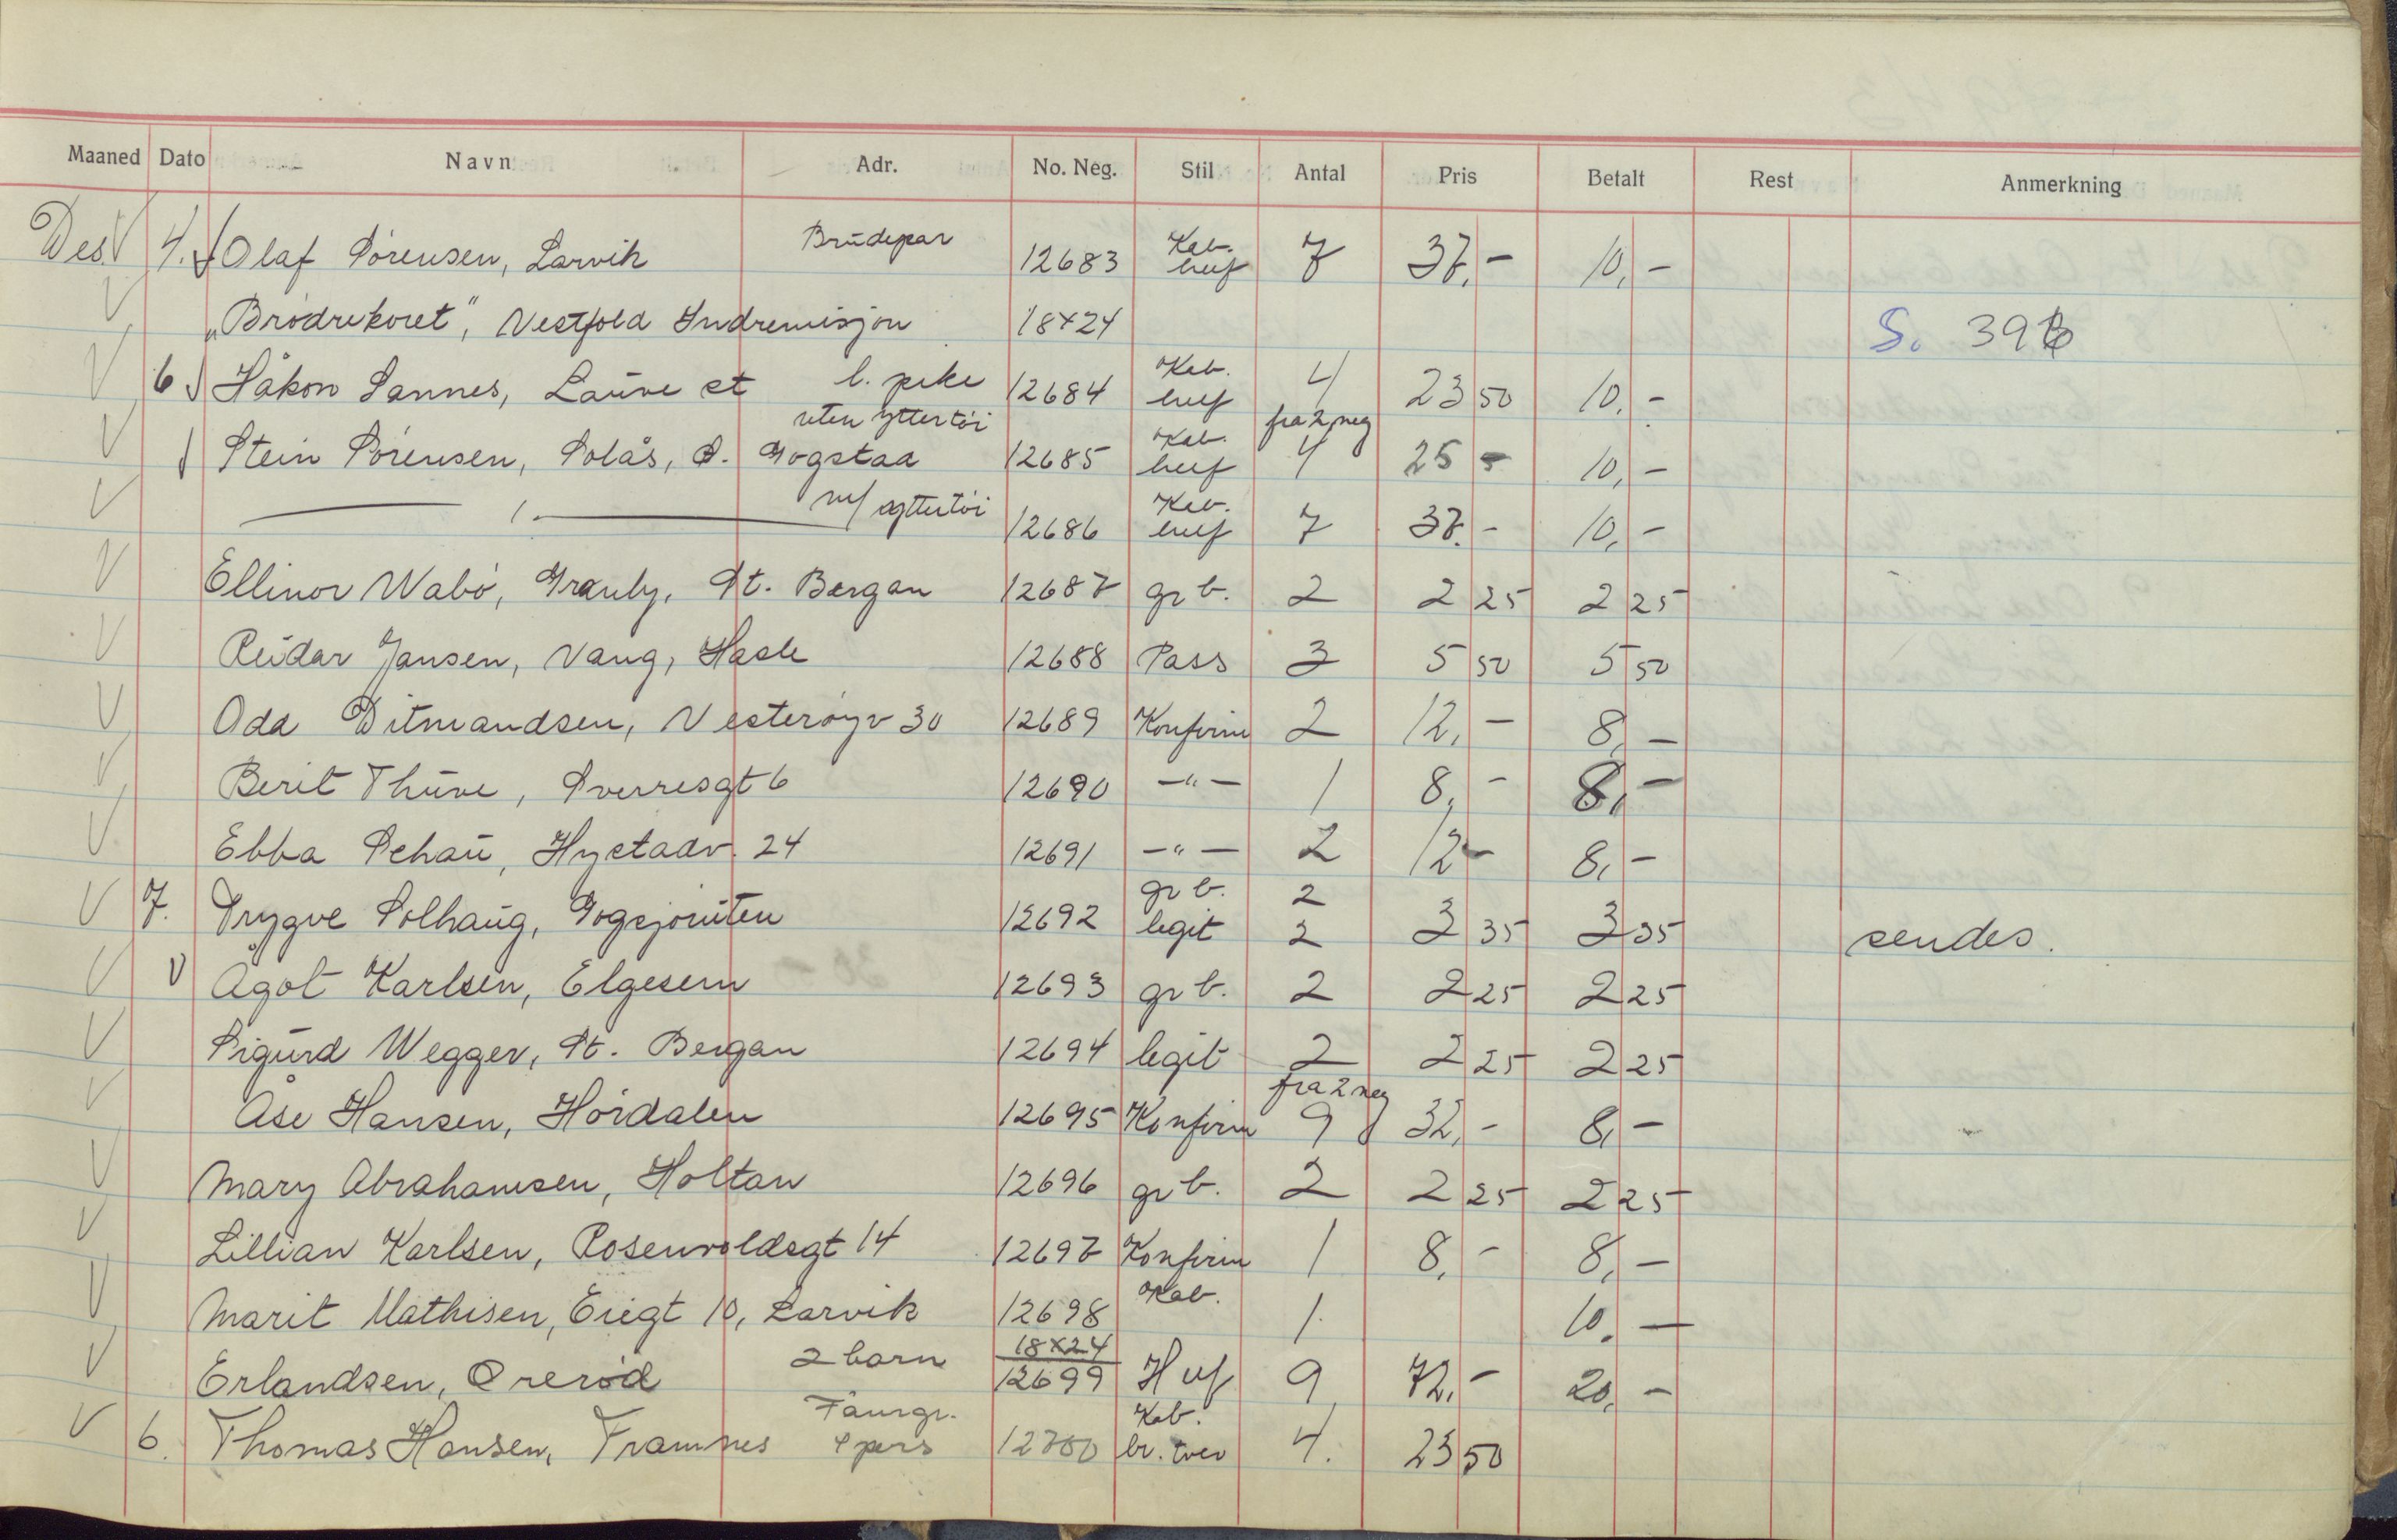 Maaned Dato Navn Adr. No. Neg. Stil Antal Pris Betalt Rest Anmerkning
Des. V 4. Olaf Sörensen, Larvik Brudepar 12683 Kab. huf 7 37,- 10,-
V "Brödrekoret", Vestfold Indremisjon 18x24 S. 396
V 6 Håkon Sannes, Lauve st l. pike 12684 Kab. huf 4 23 50 10.-
V Stein Sörensen, Solås, S. Gogstad uten yttertöi 12685 Kab. huf fra 2 neg 4 25 - 10,-
V —— 1. —— m/ yttertöi 12686 Kab. huf 7 37.- 10,-
V Ellinor Wabö, Granly, St. Bergan 12687 gr b. 2 2 25 2 25
V Reidar Jansen, Vang, Hasle 12688 Pass 3 5 50 5 50
V Oda Ditmandsen, Vesteröyv 30 12689 Konfirm 2 12,- 8,-
V Berit Thuve, Sverresgt 6 12690 -"- 1 8,- 8,-
V Ebba Schau, Hystadv. 24 12691 -"- 2 12 - 8,-
V 7. Trygve Solhaug, 12692 gr b. 2 legit 2 3 35 3 35 sendes.
V V Ågot Karlsen, Elgesem 12693 gr b. 2 2 25 2 25
V Sigurd Wegger, St. Bergan 12694 legit 2 2 25 2 25
V Åse Hansen, Höidalen 12695 Konfirm fra 2 neg 9 32,- 8,-
V Mary Abrahamsen, Holtan 12696 gr b. 2 2 25 2 25
V Lillian Karlsen, Rosenvoldsgt 14 12697 Konfirm 1 8,- 8,-
V Marit Mathisen, 10, Larvik 12698 Kab. 1. 10.-
V Erlandsen, Oreröd 2 barn 18x24 12699 Huf 9 72,- 20,-
V 6. Thomas Hansen, Framnes 4 pers 12700 Kab. br. tver 4. 23 50